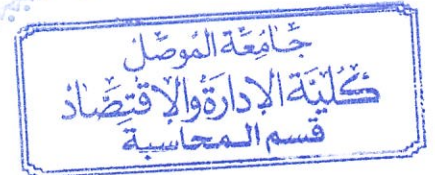 جَامِعَة المُوصِّل
كُليَّة الإدارَةِ وَالإقتِصَّاد
قسم المحاسبة